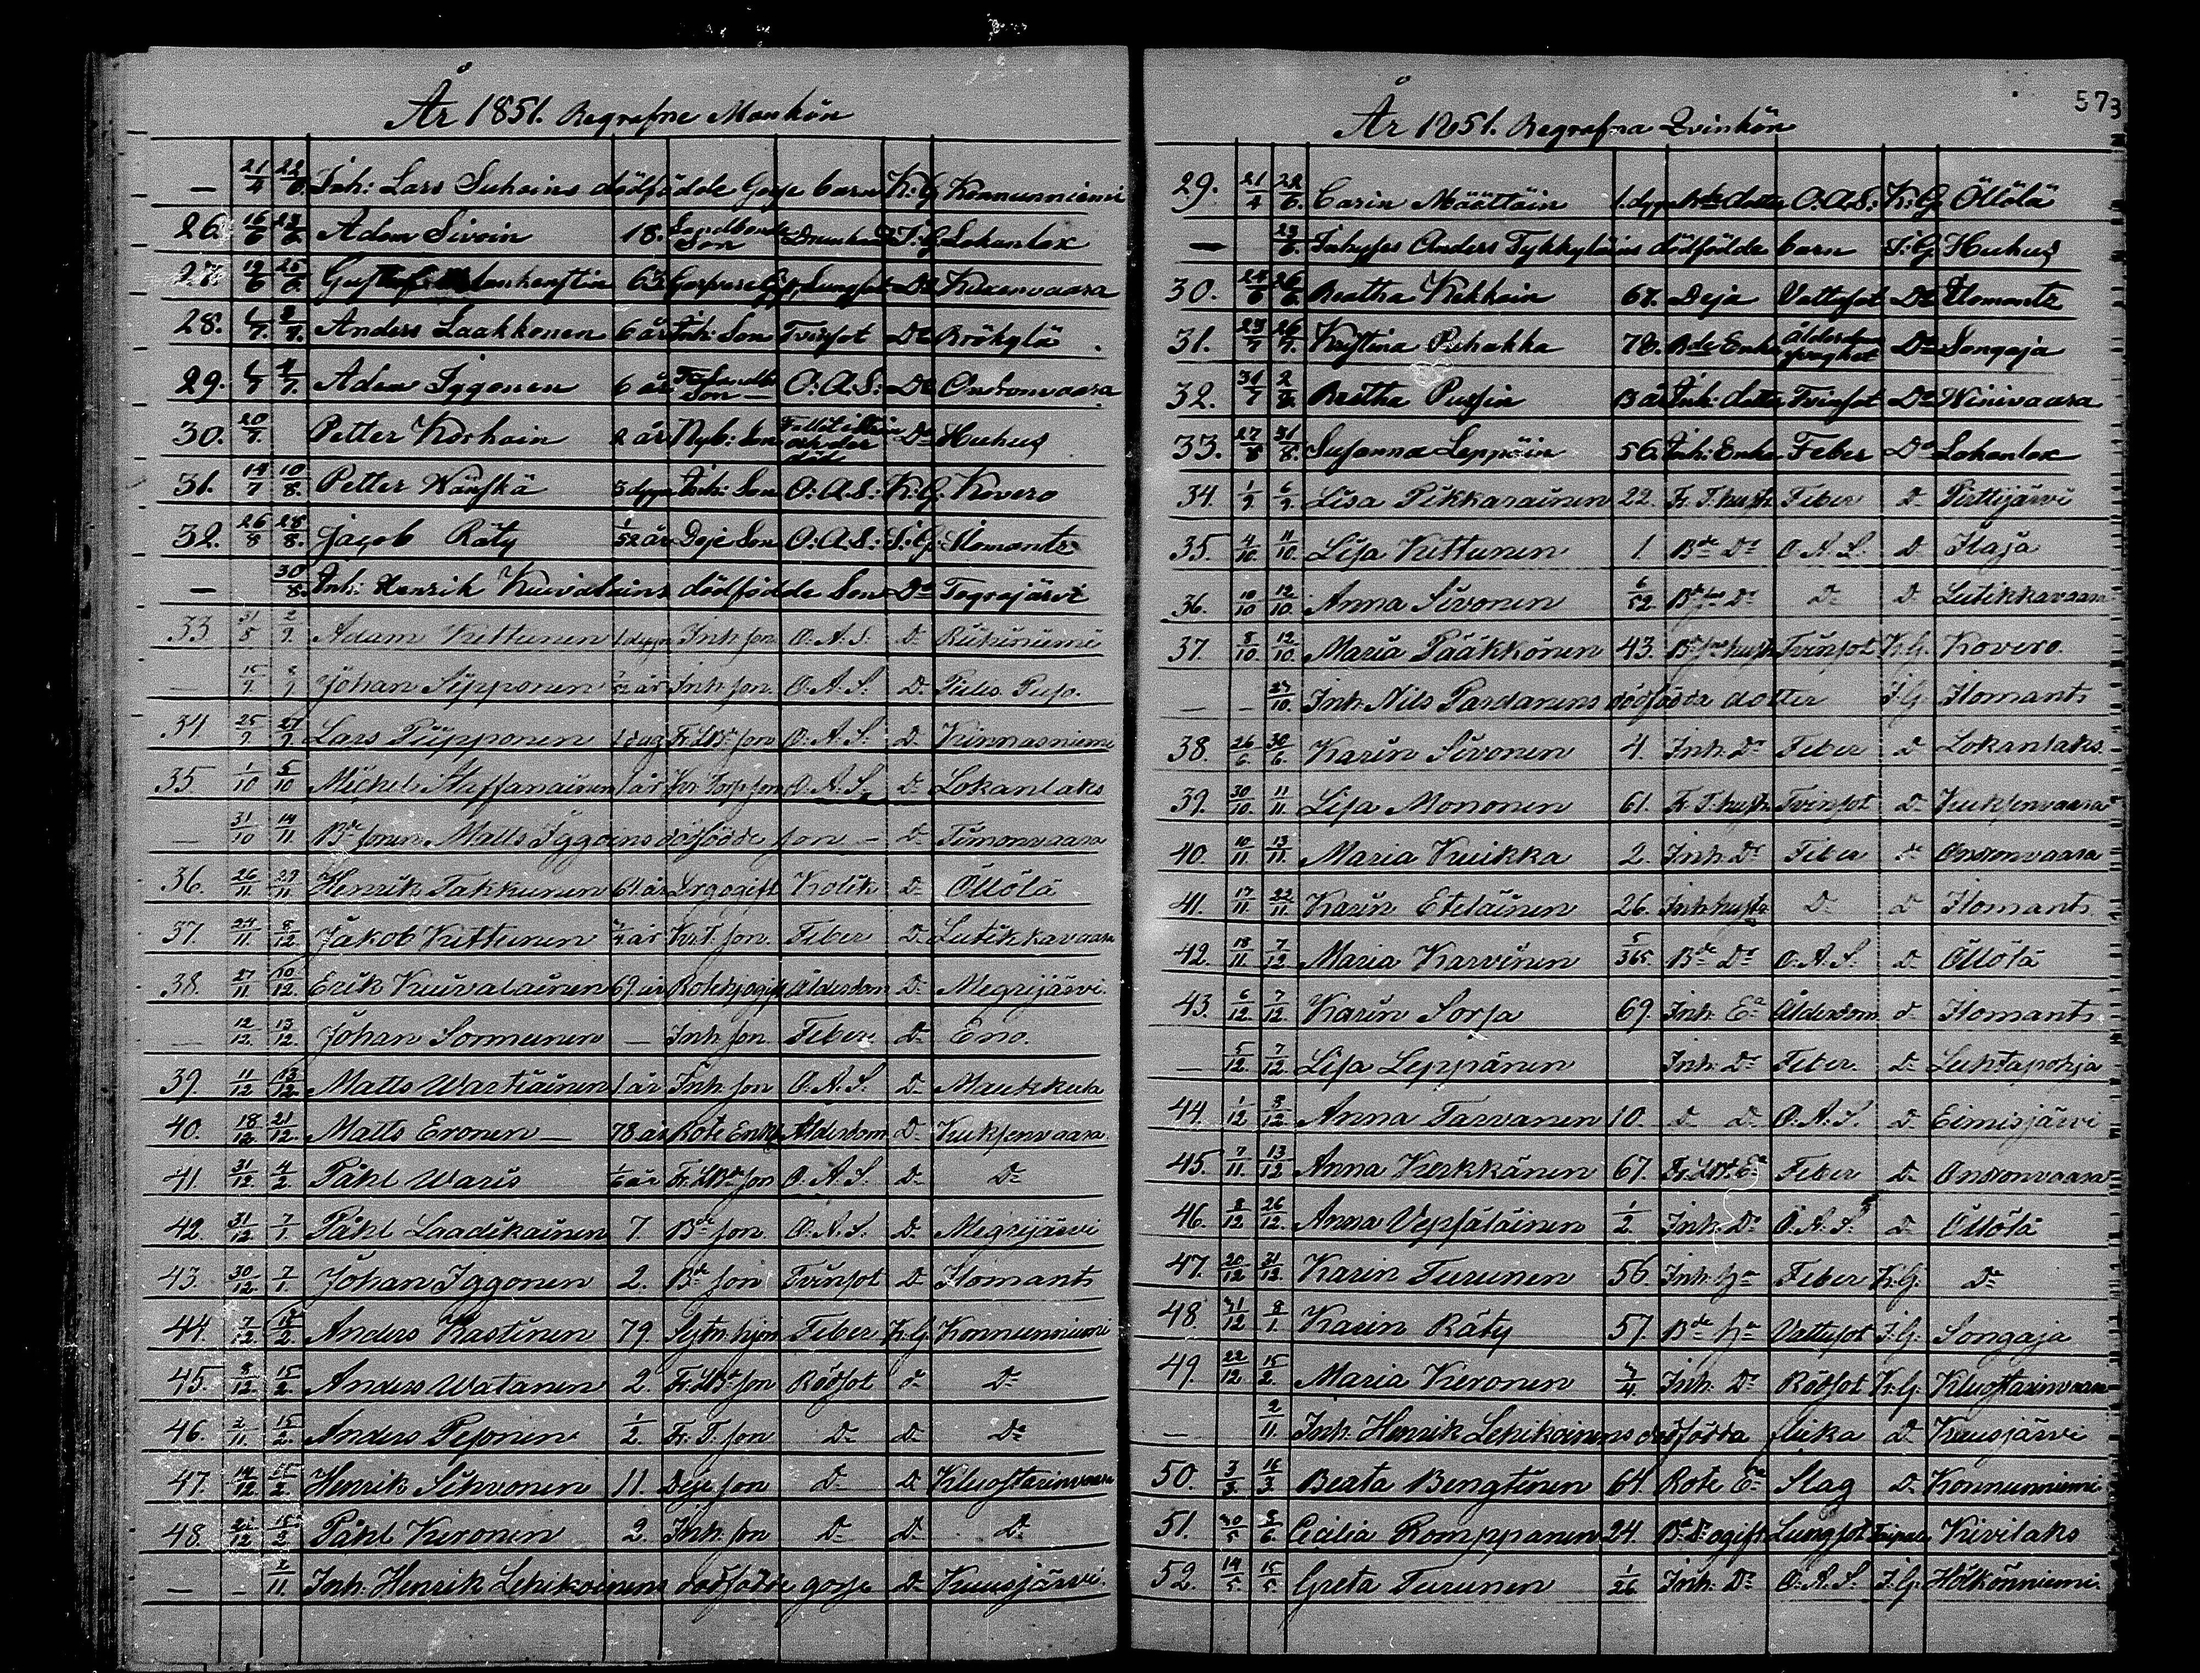 År 1851. Begrafne Mankön
— 21/4 22/6. Inh: Lars Suhoins dödfödde Gosse barn K:G Konnunniemi
26. 16/6 Adam Sivoin 18. Landbonde Son I:G Lokanlax
27. 19/6 25/6. 63. Lungsot Do Kuxenvaara
28. 1/7. Anders Laakkonen 6 år Inh: Son Tvinsot Do
29. 1/7 Adam Iggonen 6 år Son O:A:S: Do Ontronvaara
30. 20/7. Petter Korhoin 2 år Nyb: Son Do Huhus
31. 14/7 10/8. Petter Wänskä 3 dygn Inh: Son O:A.S: K:G. Kovero
32. 26/8 28/8. Jacob Räty 1/52 år Deje Son O:A.S: I:G: Ilomants
— 30/8. Inh: Henrik Kuivalains dödfödde Son Do Tograjärvi
33 31/8 2/9. Adam Kettunen 1 dygn Inh. son O.A.S. D. Riihiniemi
— 15/7 8/9 Johan Sipponen Inh. son. O.A.S. D.
34 25/9 27/9 Lars Piipponen 1 dag son O.A.S. D. Kinnasniemi
35 1/10 5/10 Michel Staffanainen 1 år son O.A.S. D. Lokanlaks
— 31/10 14/11 Bde sonen Matts Iggoins dödfödde son — D. Timonvaara
36. 26/11 29/11 Henrik Takkunen 61 år Kolik D. Öllölä
37. 24/11. 8/12. Jakob Kettunen 3/4 år Kr.T. son Feber D. Lutikkavaara
38. 27/11. 10/12. Erik Kuivalainen 69 år Ålderdom D. Megrijärvi
— 12/12. 13/12. Johan Sormunen — Inh. son Feber D. Eno.
39. 11/12 13/12. Matts Wartiainen 1 år Inh. son O.A.S. D. Maukkula
40. 18/12. 21/12. Matts Eronen — 78 år Rote Enkl. Ålderdom D. Kuksenvaara
41 31/12. 4/2. Påhl Waris 1/6 år son O.A.S. D. D.
42 31/12 7/1. Påhl Laadikainen 7. Bde son O.A.S. D. Megrijärvi
43. 30/12. 7/1. Johan Iggonen 2. Bde son Tvinsot D. Ilomants
44. 7/12 Anders Rastinen 79 Feber K.G. Konnunniemi
45. 8/12. 15/2. Anders Watanen 2. son Rödsot d. D.
46. 2/11. 15/2. Anders Pesonen 1/2. Fr. T. son D. D. D.
47. 14/12 15/2. Henrik Sihvonen 11. Deje son D. D.
48. 15/2 Påhl Kuronen 2. Inh. son D. D. D.
— — 2/11. Inh. Henrik Lehikoinens dödfödde gosse D. Kuusjärvi.
573
År 1851. Begrafna Qvinkön
29. 21/4 22/6. Carin Määttäin 1. dygn Bde dotter O.A.S: K:G. Öllölä
— 23/6. Inhyses Anders Tykkyläins dödfödde barn I:G. Huhus
30. 26/6. Beatha Kekkoin 67. Deja Vattusot Do Ilomants
31. 26/7. Kristina Puhakka 78. Bde Enka Ålderdoms Do Songaja
32. 31/7 2/8. Beatha Pussin Inh: dotter Tvinsot Do Winivaara
33. 27/8 31/8. Susanna Leppäin 56. Inh: Enka Feber Do Lokanlax
34. 1/9. 6/9. Lisa Pikkarainen 22. Fr. T. hustr. Feber D. Perttijärvi
35. 4/10. 11/10. Lisa Kettunen 1 Bde Dr O.A.S. D. Ilaja
36. 10/10 12/10. Anna Sivonen 6/52. D. D. Lutikkavaara
37. 8/10. 12/10. Maria Pääkkönen 43. Tvinsot K.G. Kovero.
— — 27/10. Inh. Nils Pardanens dödfödda dotter I.G. Ilomants
38. 26/6. 30/6. Karin Sivonen 4. Inh. Dr Feber D. Lokanlaks
39. 30/10. 11/11. Lisa Mononen 61. Fr. T. hustr. Tvinsot D. Kuksenvaara
40. 10/11 13/11. Maria Kuikka 2. Inh. Dr Feber D. Ontronvaara
41. 17/11. 22/11. Karin Eteläinen 26. Inh. hustr. D. D. Ilomants
42. 18/11. 7/12. Maria Karvinen 5/365. Bde Dr O.A.S. D. Öllölä
43. 6/12. 7/12. Karin Sorsa 69. Inh. Ea Ålderdom d. Ilomants
— 5/12. 7/12. Lisa Leppänen Inh. Dr Feber. D. Luhtapohja
44. 1/12 8/12. Anna Tarvanen 10. D D. O.A.S. D. Eimisjärvi
45. 7/11. 13/12 Anna Kerkkänen 67. Feber D. Ontronvaara
46. 8/12 26/12. Anna Vepsäläinen 1/2. Inh. Dr O.A.S D. Öllölä
47. 20/12 31/12. Karin Turunen 56. Inh. Feber K.G. D.
48. 31/12 8/1. Karin Räty 57. Bde Vattusot I.G. Songaja
49. 22/12. 15/2. Maria Kuronen 3/4. Inh. Dr Rödsot K.G.
— 2/11. Inh. Henrik Lehikoinens dödfödda flicka D. Kuusjärvi
50. 3/3. 16/3. Beata Bengtinen 64. Rote Ea Slag D. Konnunniemi
51. 30/5 Cecilia Romppanen 24. Lungsot Kivilaks
52. 14/5 15/5 Greta Turunen 1/26 Inh. Dr O.A.S. I.G.